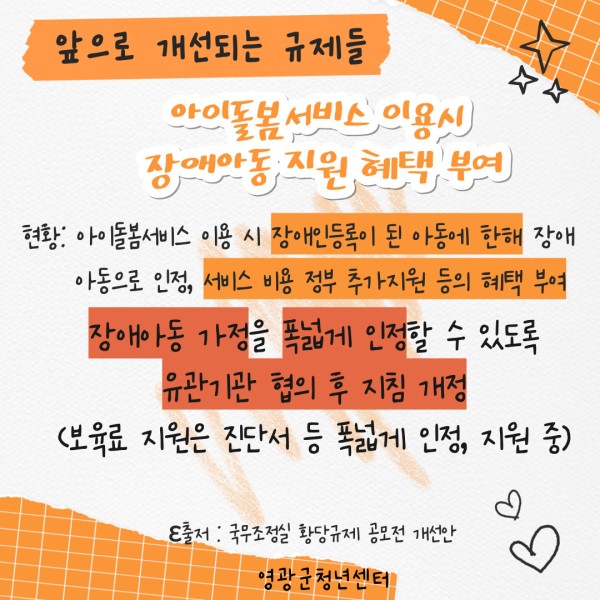 앞으로 개선되는 규제들
아이돌봄서비스 이용시
장애아동 지원 혜택 부여
현황: 아이돌봄서비스 이용 시 장애인등록이 된 아동에 한해 장애
아동으로 인정, 서비스 비용 정부 추가지원 등의 혜택 부여
장애아동 가정을 폭넓게 인정할 수 있도록
유관기관 협의 후 지침 개정
(보육료 지원은 진단서 등 폭넓게 인정, 지원 중)
ε출저 : 국무조정실 황당규제 공모전 개선안
영광군청년센터